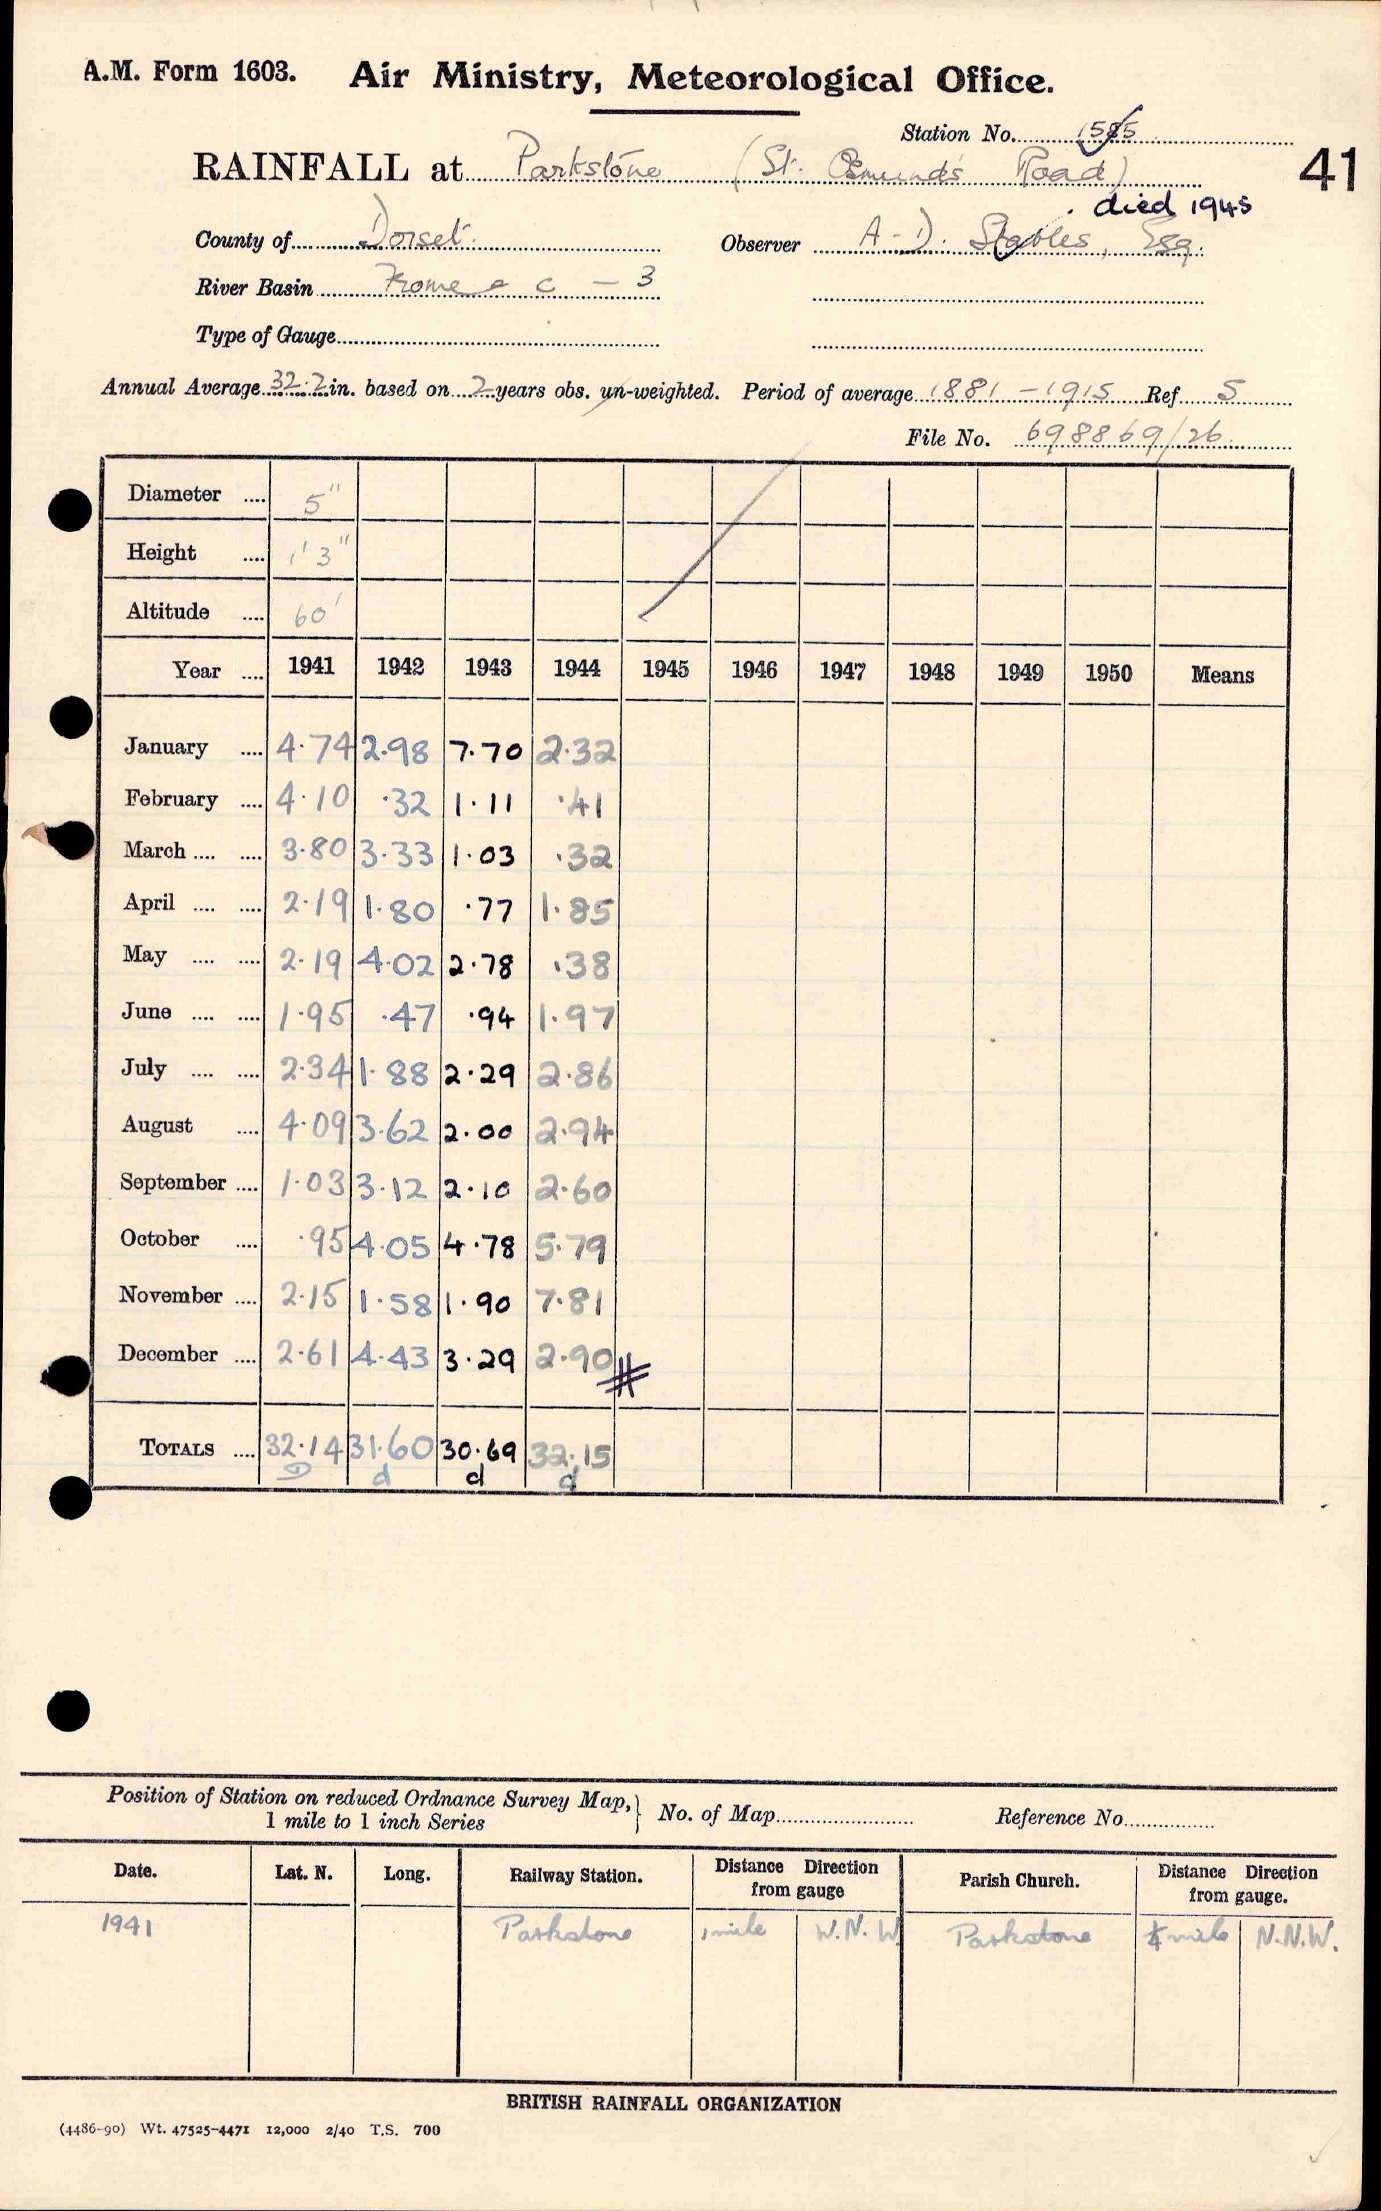 A.M. Form 1603. Air Ministry, Meteorological Office.
Station No. 1585
RAINFALL at Parkstone (St. Osmund's Road)
41
died 1945
County of Dorset. Observer A. D. Staples, Esq.
River Basin Frome &c - 3
Type of Gauge
Annual Average 32.2 in. based on 2 years obs. un-weighted. Period of average 1881-1915 Ref. 5
File No. 698869/26
Diameter .... 5"
Height .... 1' 3"
Altitude .... 60'
Year .... 1941 1942 1943 1944 1945 1946 1947 1948 1949 1950 Means
January .... 4.74 2.98 7.70 2.32
February .... 4.10 .32 1.11 .41
March .... .... 3.80 3.33 1.03 .32
April .... .... 2.19 1.80 .77 1.85
May .... .... 2.19 4.02 2.78 .38
June .... .... 1.95 .47 .94 1.97
July .... .... 2.34 1.88 2.29 2.86
August .... 4.09 3.62 2.00 2.94
September .... 1.03 3.12 2.10 2.60
October .... .95 4.05 4.78 5.79
November .... 2.15 1.58 1.90 7.81
December .... 2.61 4.43 3.29 2.90
TOTALS .... 32.14 31.60 30.69 32.15
D d d d
Position of Station on reduced Ordnance Survey Map, 1 mile to 1 inch Series } No. of Map Reference No.
Date. Lat. N. Long. Railway Station. Distance Direction from gauge Parish Church. Distance Direction from gauge.
1941 Parkstone 1 mile W.N.W. Parkstone ¼ mile N.N.W.
BRITISH RAINFALL ORGANIZATION
(4486-90) Wt. 47525-4471 12,000 2/40 T.S. 700